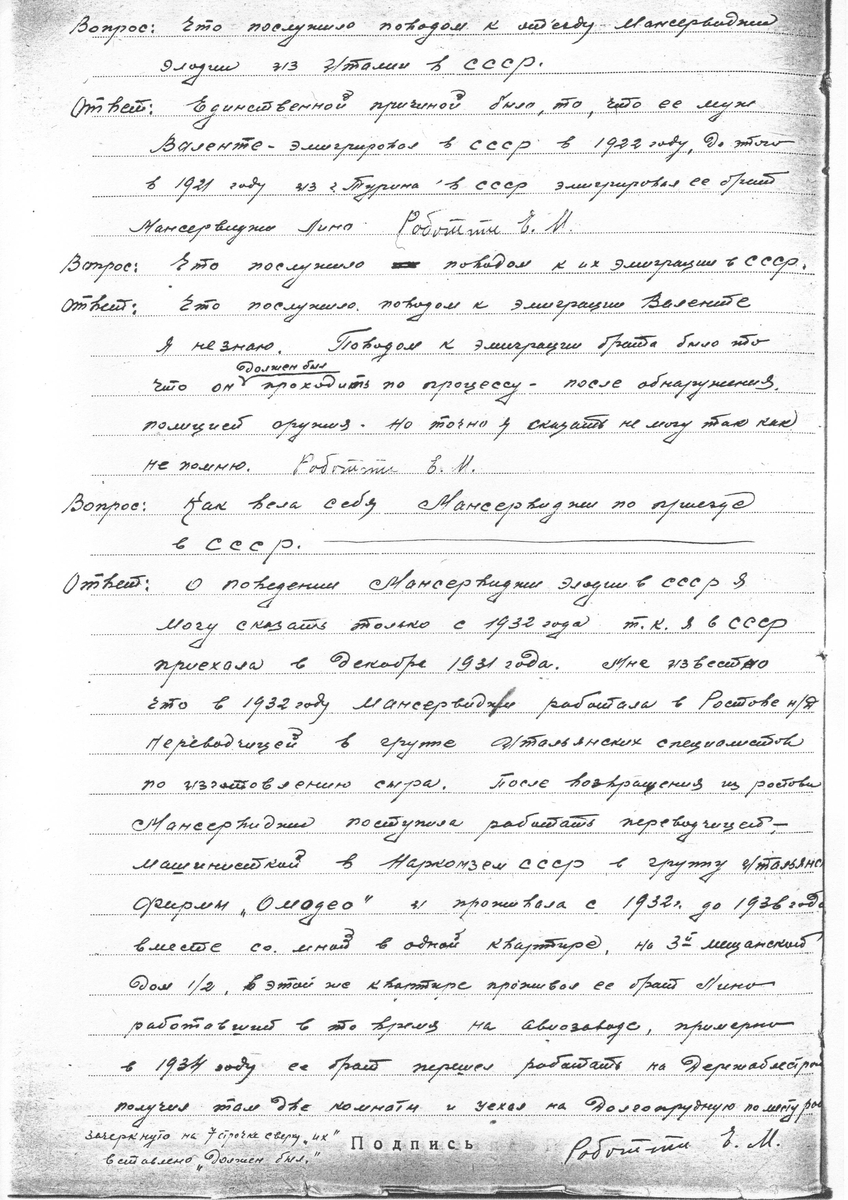 Вопрос: Что послужило поводом к отъезду Мансервиджи
Элодии из Италии в СССР.
Ответ: Единственной причиной было, то, что ее муж
Валенте - эмигрировал в СССР в 1922 году, До этого
в 1921 году из г Турина в СССР эмигрировал ее брат
Мансервиджи Лино Роботти Е. М.
Вопрос: Что послужило поводом к их эмиграции в СССР.
Ответ: Что послужило поводом к эмиграции Валенте
Я не знаю. Поводом к эмиграции брата было то
Должен был
что он проходить по процессу - после обнаружения
полицией оружия. Но точно я сказать не могу так как
не помню. Роботти Е. М.
Вопрос: Как вела себя Мансервиджи по приезде
в СССР.
Ответ: О поведении Мансервиджи Элодии в СССР Я
могу сказать только с 1932 года т.к. я в СССР
приехала в Декабре 1931 года. Мне известно
что в 1932 году Мансервиджи работала в Ростове н/Д
переводчицей в группе Итальянских специалистов
по изготовлению сыра. После возвращения из ростова
Мансервиджи поступила работать переводчицей-
машинисткой в Наркомзем СССР в группу Итальянс
Фирмы „Омодео" и проживала с 1932г. до 1936 года
вместе со мной в одной квартире, на 3й мещанской
Дом 1/2, в этой же квартире проживал ее брат Лино
работавший в то время на авиозаводе, примерно
в 1934 году ее брат перешел работать на Держаблестрой
получил там две комнаты и уехал на Долгопрудную
зачеркнуто на 7 строчке сверху „их"
вставлено „Должен был."
Подпись Роботти Е. М.